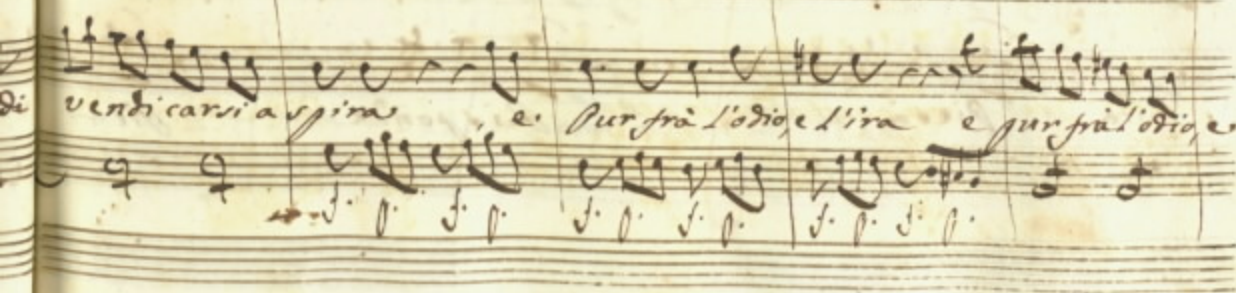 di vendicarsi aspira e. Pur frà l'odio, e l'ira e pur frà l'odio, e
f. p. f. p. f. p. f. p. f. p. f. p.